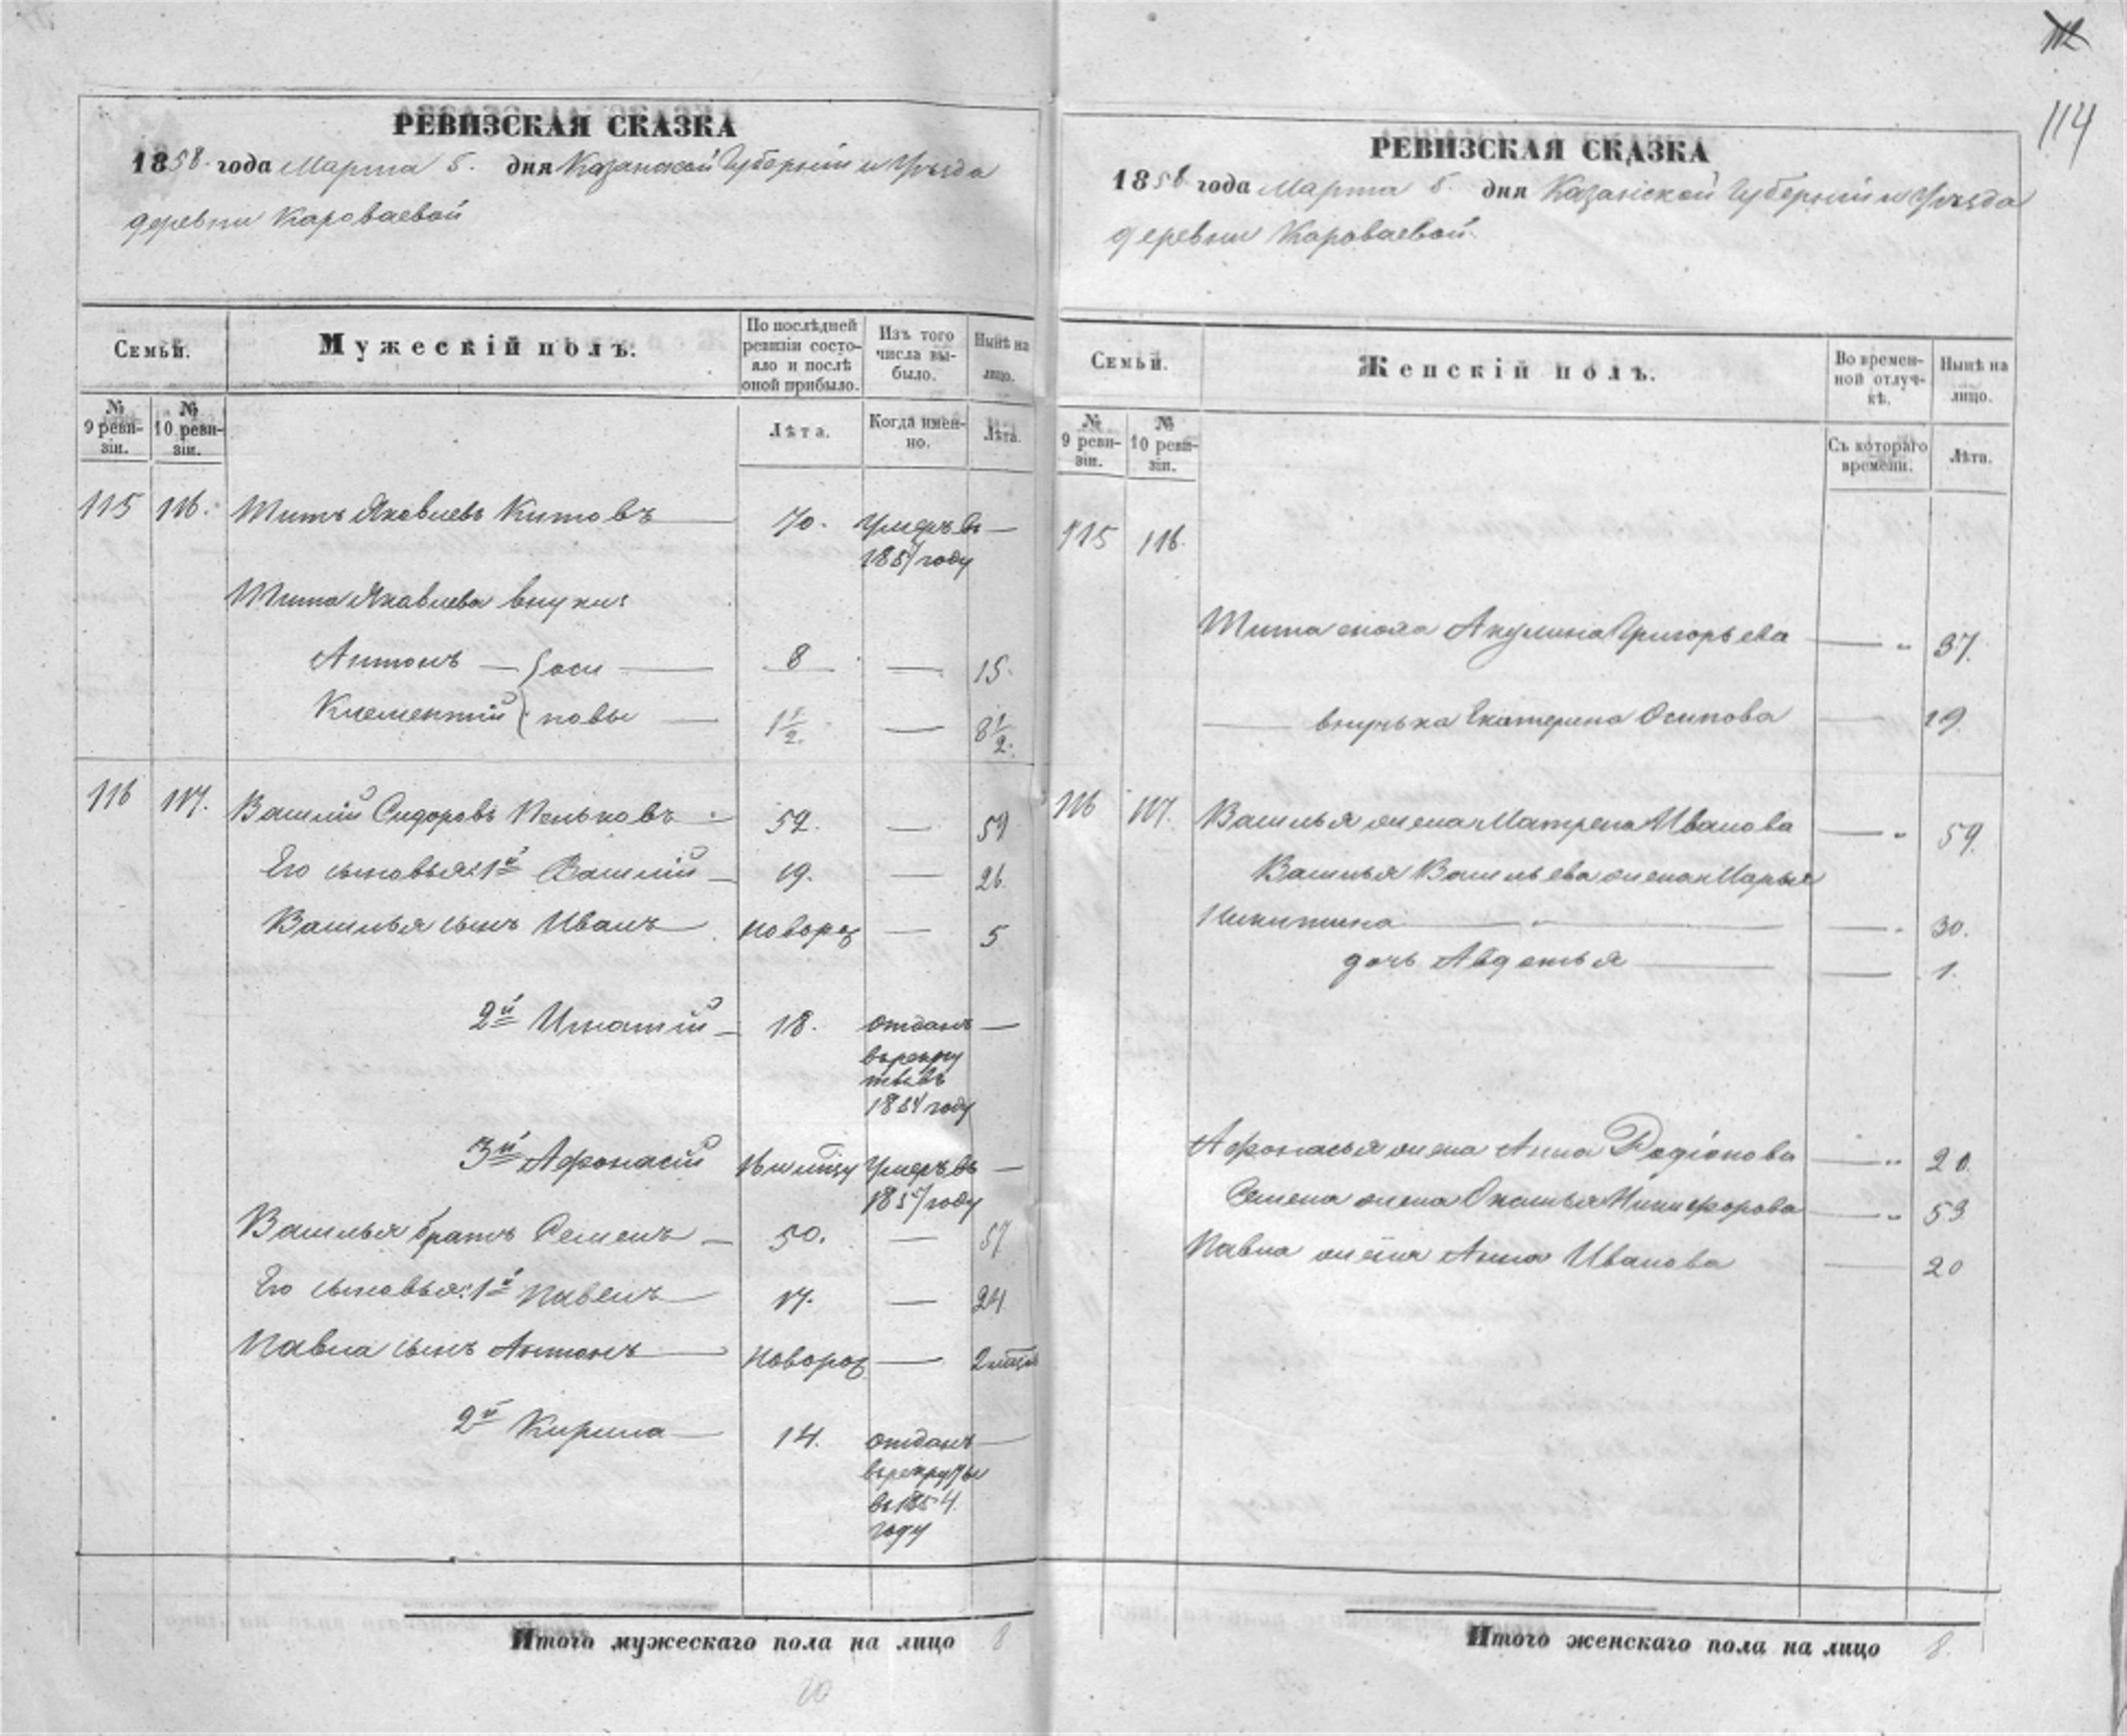 112
114
РЕВИЗСКАЯ СКАЗКА
1858 года Марта 5. дня Казанской Губернiи и Уѣзда
деревни Кароваевой
Семьи.
Мужескiй полъ.
По послѣдней ревизiи состояло и послѣ оной прибыло.
Изъ того числа выбыло.
Нынѣ на лицо.
№ 9 ревизiи.
№ 10 ревизiи.
Лѣта.
Когда именно.
Лѣта.
115 116. Титъ Яковлевъ Китовъ 70. Умеръ въ —
1857 году
Тита Яковлева внуки:
Антонъ — } оси — 8 — 15.
Клементiй } повы — 1 1/2. — 8 1/2.
116 117. Василiй Сидоровъ 52. — 59
Его сыновья: 1й Василiй — 19. — 26.
Василья сынъ Иванъ новорож — 5
2й Игнатiй — 18. отданъ —
въ рекру
ты въ
1854 году
3й Афонасiй Умеръ въ —
1857 году
Василья братъ Семенъ — 50. — 57
Его сыновья: 1й Павелъ — 17. — 24
Павла сынъ Антонъ — новорож — 2 мѣся
2й Кирила — 14. отданъ —
въ рекруты
въ 1854.
году
Итого мужескаго пола на лицо 8
20
РЕВИЗСКАЯ СКАЗКА
1858 года Марта 5. дня Казанской Губернiи и Уѣзда
деревни Кароваевой.
Семьи.
Женскiй полъ.
Во временной отлучкѣ.
Нынѣ на лицо.
№ 9 ревизiи.
№ 10 ревизiи.
Съ котораго времени.
Лѣта.
115 116.
Тита сноха Акулина Григорьева — " 37.
— внучька Екатерина Осипова — 19.
116 117. Василья жена Матрена Иванова — " 59.
Василья Васильева жена Марья
Никитина — " — 30.
дочь Авдотья — 1.
Афонасья жена Анна Родiонова — " 20.
Семена жена Никифорова — " 53
Павла жена Анна Иванова — 20
Итого женскаго пола на лицо 8.